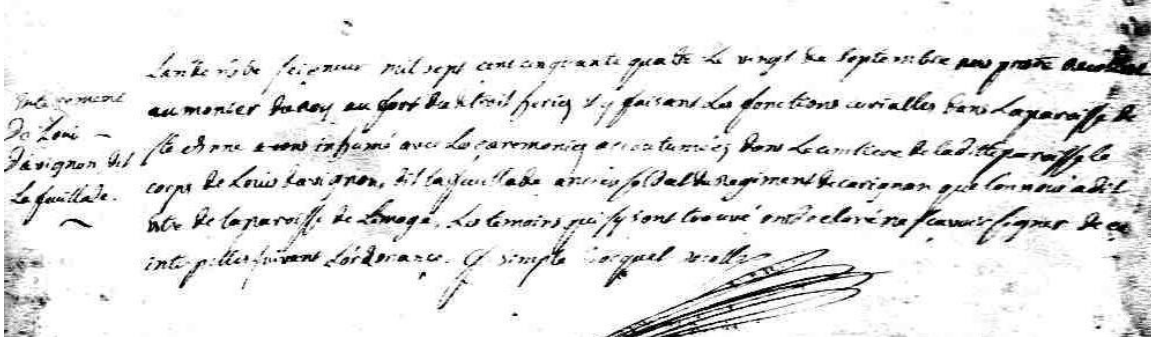 Enterement
De Loui
Davignon dit
La feuillade.
L'an de notre seigneur mil sept cent cinquante quatre le vingt de septembre nous pretre recollet
aumonier du roy au fort du detroit y faisant les fonctions curialles dans la paroisse de
ste anne avons inhumé avec les caremonies accoutumées dans le cimtiere de la ditte paroisse le
corps de Louis davignon, dit la feuillade ancien soldat du regiment de carignan que l'on nous a dit
etre de la paroisse de Limoge, Les temoins qui s'y sont trouvé ont declaré ne scavoir signer de ce
interpellés suivant L'ordonance. simple Bocquet recollet